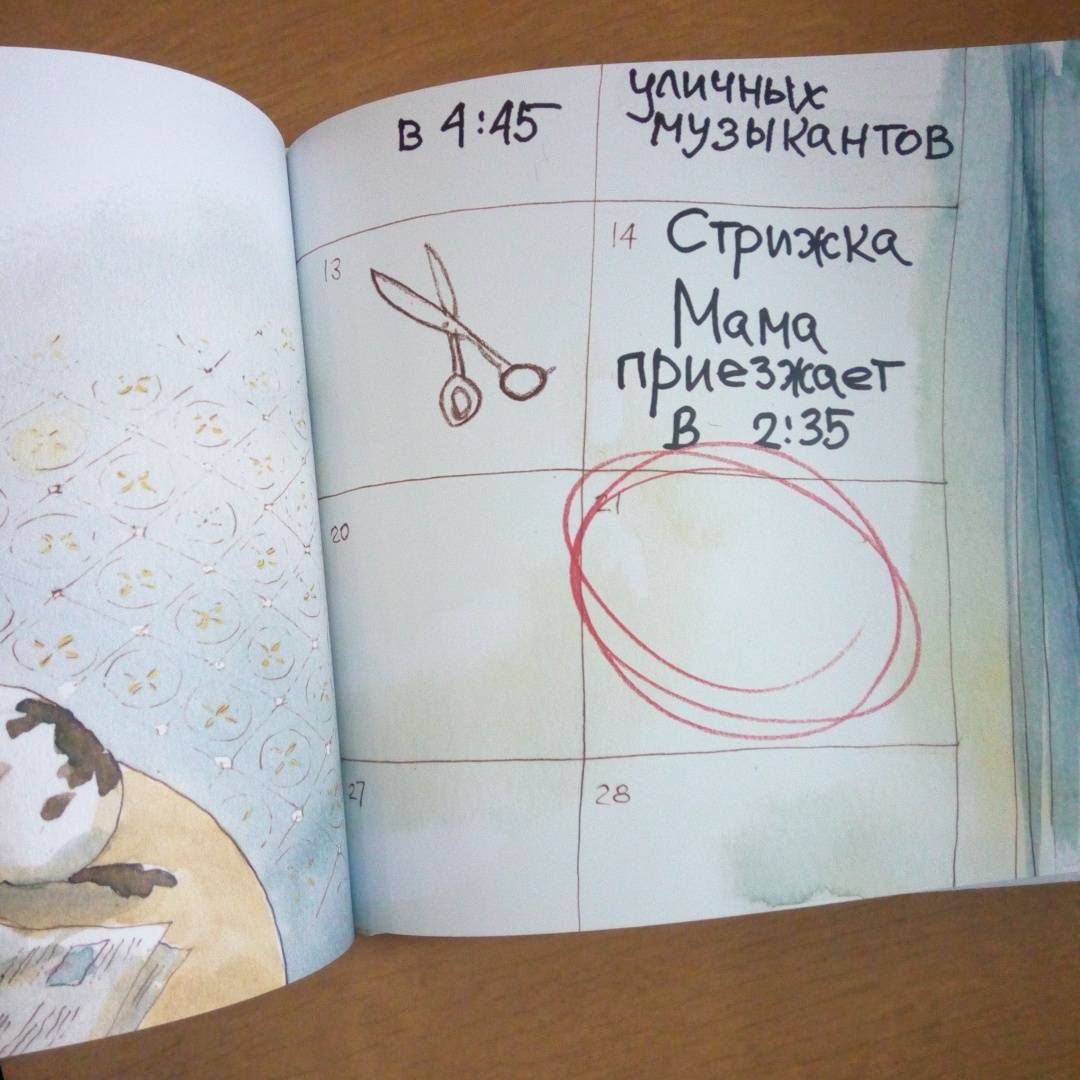 в 4:45
уличных
музыкантов
13
14 Стрижка
Мама
приезжает
в 2:35
20
21
27
28